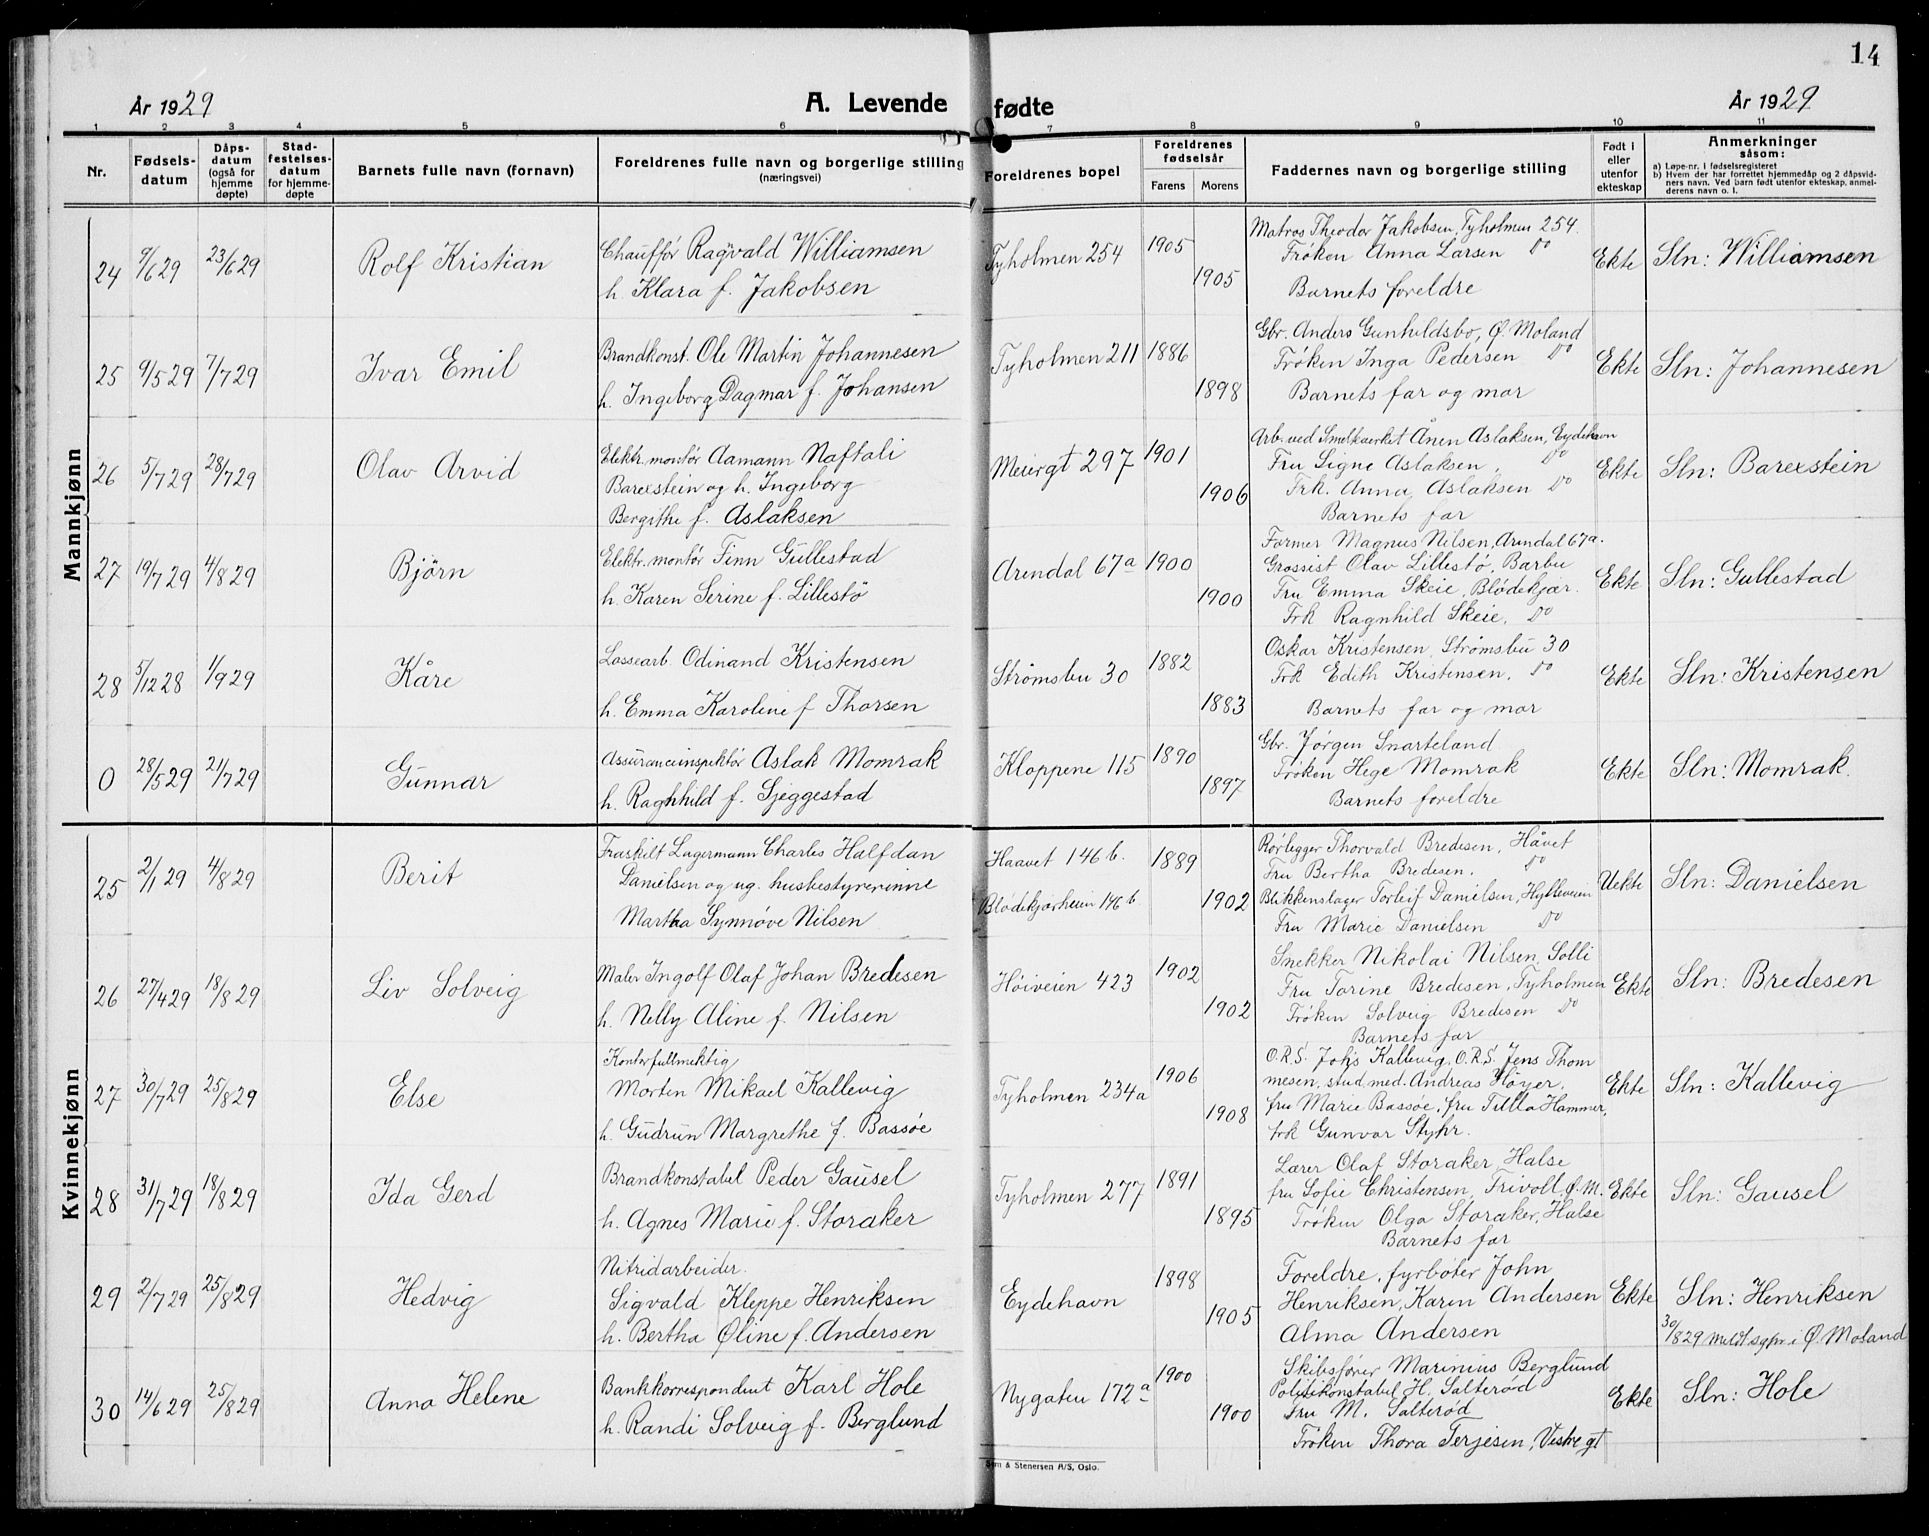 14
År 1929
A. Levende fødte
År 1929
1 2 3 4 5 6 7 8 9 10 11
Nr.
Fødsels-
datum
Dåps-
datum
(også for
hjemme
døpte)
Stad-
festelses-
datum
for hjemme-
døpte
Barnets fulle navn (fornavn)
Foreldrenes fulle navn og borgerlige stilling
(næringsvei)
Foreldrenes bopel
Foreldrenes
fødselsår
Farens Morens
Faddernes navn og borgerlige stilling
Født i
eller
utenfor
ekteskap
Anmerkninger
såsom:
a) Løpe-nr. i fødselsregisteret
b) Hvem der har forrettet hjemmedåp og 2 dåpsvid-
ners navn. Ved barn født utenfor ekteskap, anmel-
derens navn o. l.
Mannkjønn
24 9/6 29 23/6 29 Rolf Kristian
Chauffør Ragvald Williamsen
h. Klara f. Jakobsen
Tyholmen 254 1905 1905
Matros Theodor Jakobsen, Tyholmen 254.
Frøken Anna Larsen Do
Barnets foreldre
Ekte Sln: Williamsen
25 9/5 29 7/7 29 Ivar Emil
Brandkonst. Ole Martin Johannesen
h. Ingeborg Dagmar f. Johansen
Tyholmen 211 1886 1898
Gbr. Anders Gunhildsbo, Ø. Moland
Frøken Inga Pedersen Do
Barnets far og mor
Ekte Sln: Johannesen
26 5/7 29 28/7 29 Olav Arvid
Elektr. montör Aamann Naftali
Barexstein og h. Ingeborg
Bergithe f. Aslaksen
Meiergt 297 1901 1906
Arb. ved Smelteverket Ånen Aslaksen, Eydehavn
Fru Signe Aslaksen, Do
Frk. Anna Aslaksen Do
Barnets far
Ekte Sln: Barexstein
27 19/7 29 4/8 29 Björn
Elektr. montör Finn Gullestad
h. Karen Serine f. Lillestö
Arendal 67a 1900 1900
Former Magnus Nilsen, Arendal 67a.
Grossist Olav Lillestö, Barbu
Fru Emma Skeie, Blödekjær.
Frk Ragnhild Skeie, Do
Ekte Sln: Gullestad
28 5/12 28 1/9 29 Kåre
Lossearb. Odinand Kristensen
h. Emma Karoline f Thorsen
Strömsbu 30 1882 1883
Oskar Kristensen, Strømsbu 30
Frk Edith Kristensen, Do
Barnets far og mor
Ekte Sln: Kristensen
0 28/5 29 21/7 29 Gunnar
Assuranceinspektör Aslak Momrak
h. Raghhild f. Sjeggestad
Kloppene 115 1890 1897
Gbr. Jørgen Snarteland
Frøken Hege Momrak
Barnets foreldre
Ekte Sln: Momrak.
Kvinnekjønn
25 2/1 29 4/8 29 Berit
Fraskilt Lagermann Charles Halfdan
Danielsen og ug. husbestyrerinne
Martha Synnöve Nilsen
Haavet 146 b. 1889
Blødekjærheien 146 b. 1902
Rørlegger Thorvald Bredesen, Håvet
Fru Bertha Bredesen. Do
Blikkenslager Torleif Danielsen, Hylleveien
Fru Marie Danielsen Do
Uekte Sln: Danielsen
26 27/4 29 18/8 29 Liv Solveig
Maler Ingolf Olaf Johan Bredesen
h. Nelly Aline f. Nilsen
Höiveien 423 1902 1902
Snekker Nikolai Nilsen, Solli
Fru Torine Bredesen, Tyholmen
Frøken Solveig Bredesen Do
Barnets far
Ekte Sln: Bredesen
27 30/7 29 25/8 29 Else
Kontorfullmektig
Morten Mikael Kallevig
h. Gudrun Margrethe f. Bassöe
Tyholmen 234a 1906 1908
O.R.S. Johs Kallevig, O.R.S. Jens Thom
mesen, stud. med. Andreas Höyer,
fru Marie Bassöe, fru Tilla Hammer,
frk Gunvor Styhr.
Ekte Sln: Kallevig
28 31/7 29 18/8 29 Ida Gerd
Brandkonstabel Peder Gausel
h. Agnes Marie f. Storaker
Tyholmen 277 1891 1895
Lærer Olaf Storaker, Halse
fru Sofie Christensen, Trivoll, Ø. M.
Frøken Olga Storaker, Halse
Barnets far
Ekte Sln: Gausel
29 2/7 29 25/8 29 Hedvig
Nitridarbeider.
Sigvald Kleppe Henriksen
h. Bertha Øline f. Andersen
Eydehavn 1898 1905
Foreldre, fyrböter John
Henriksen, Karen Andersen
Alma Andersen
Ekte Sln: Henriksen
30/8 29 meldt sgpr i Ø. Moland
30 14/6 29 25/8 29 Anna Helene
Bankkorrespondent Karl Hole
h. Randi Solveig f. Berglund
Nygaten 172a 1900 1900
Skibsfører Marinius Berglund
Politikonstabel H. Salterød
Fru M. Salterød
Frøken Thora Terjesen, Vestre gt
Ekte Sln: Hole
Sem & Stenersen A/S, Oslo.